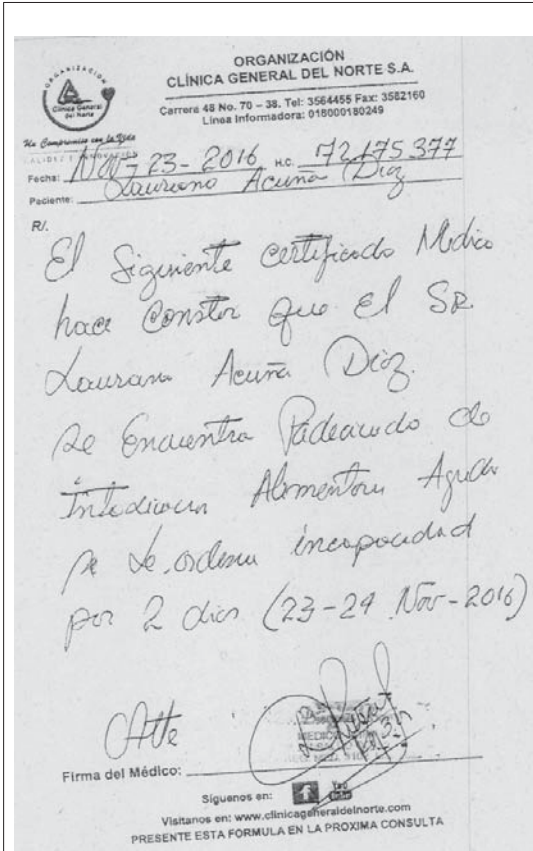 ORGANIZACIÓN
CLÍNICA GENERAL DEL NORTE S.A.
Carrera 48 No. 70 – 38. Tel: 3564455 Fax: 3562160
Linea Informadora: 018000180249
ORGANIZACIÓN
Clínica General
del Norte
Un Compromiso con la Vida
CALIDEZ E INNOVACIÓN
Fecha: Nov - 23 - 2016 H.C. 72175377
Paciente: Laureano Acuña Diaz
R/.
El Siguiente Certificado Medico
hace Constar que el SR.
Laureano Acuña Diaz.
se Encuentra Padeciendo de
Intoxicacion Alimentaria Aguda
se le ordena incapacidad
por 2 dias (23-24 Nov-2016)
Atte
MEDICO
Firma del Médico:
Síguenos en: f You Tube
Visitanos en: www.clinicageneraldelnorte.com
PRESENTE ESTA FORMULA EN LA PROXIMA CONSULTA